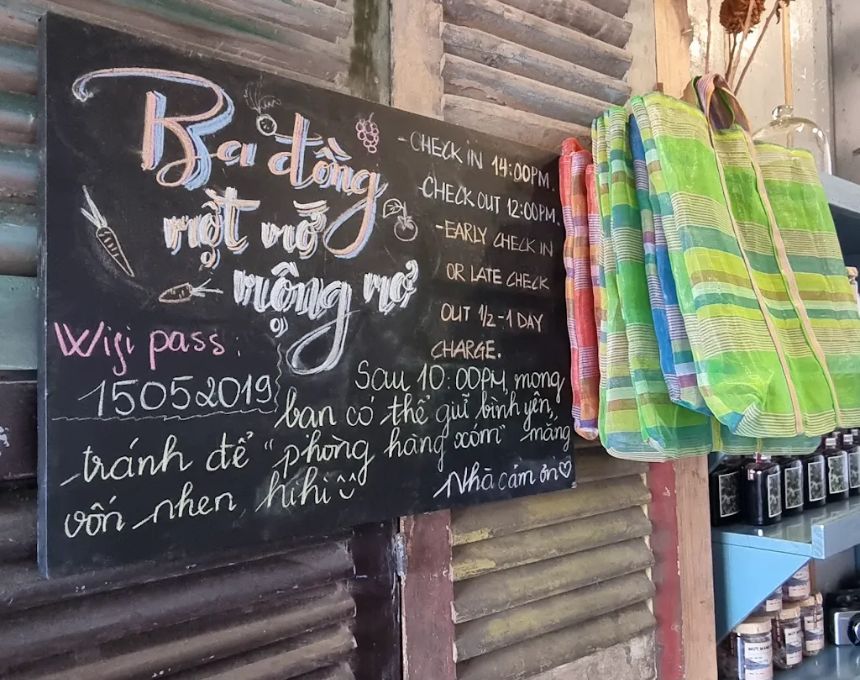 Ba đồng
một mớ
mộng mơ
-CHECK IN 14:00PM.
-CHECK OUT 12:00PM.
-EARLY CHECK IN
OR LATE CHECK
OUT 1/2-1 DAY
CHARGE.
Wifi pass:
15052019
Sau 10:00PM, mong
bạn có thể giữ bình yên,
tránh để "phòng hàng xóm" mắng
vốn nhen, hihi
Nhà cám ơn